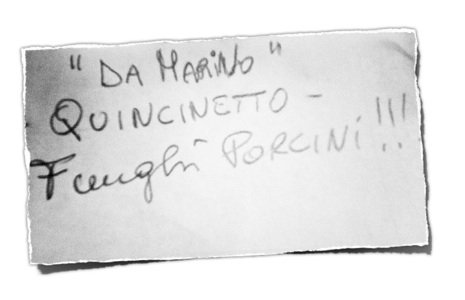 "DA MARINO"
QUINCINETTO -
Funghi PORCINI!!!